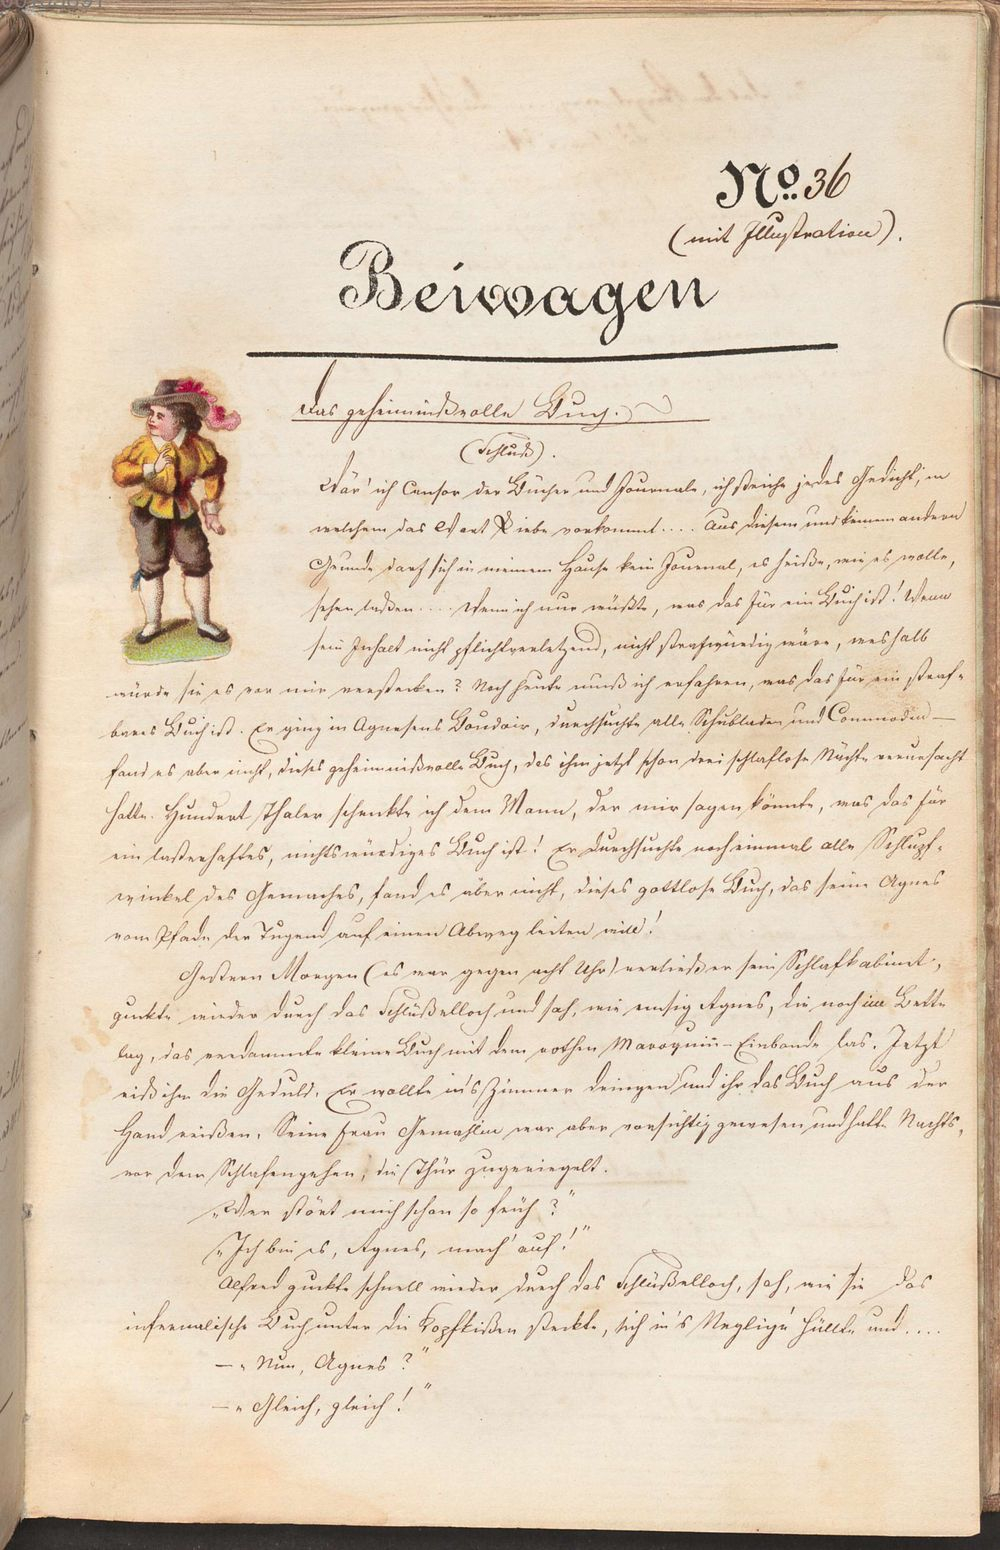 No. 36
(mit Illustration).
Beiwagen
Das geheimnißvolle Buch.
(Schluß).
Wär' ich Censor der Bücher und Journale, ich striche jedes Gedicht, in
welchem das Wort Liebe vorkommt.... Aus diesem und keinem andern
Grunde darf sich in meinem Hause kein Journal, es heiße, wie es wolle,
sehen laßen.... Wenn ich nur wüßte, was das für ein Buch ist! Wenn
sein Inhalt nicht pflichtverletzend, nicht strafwürdig wäre, weshalb
würde sie es vor mir verstecken? Noch heute muß ich erfahren, was das für ein straf-
bares Buch ist. Er ging in Agnesens Boudoir, durchsuchte alle Schubladen und Commoden —
fand es aber nicht, dieses geheimnißvolle Buch, das ihm jetzt schon drei schlaflose Nächte verursacht
hatte. Hundert Thaler schenkte ich dem Mann, der mir sagen könnte, was das für
ein lasterhaftes, nichtswürdiges Buch ist! Er durchsuchte noch einmal alle Schlupf-
winkel des Gemaches, fand es aber nicht, dieses gottlose Buch, das seine Agnes
vom Pfade der Tugend auf einen Abweg leiten will!
Gestern Morgen (es war gegen acht Uhr) verließ er sein Schlafkabinet,
guckte wieder durch das Schlüßelloch und sah, wie emsig Agnes, die noch im Bette
lag, das verdammte kleine Buch mit dem rothen Maroquin-Einbande las. Jetzt
riß ihm die Geduld. Er wollte in's Zimmer dringen und ihr das Buch aus der
Hand reißen. Seine Frau Gemahlin war aber vorsichtig gewesen und hatte Nachts,
vor dem Schlafengehen, die Thür zugeriegelt.
„Wer stört mich schon so früh?"
„Ich bin es, Agnes, mach' auf!"
Alfred guckte schnell wieder durch das Schlüßelloch, sah, wie sie das
infernalische Buch unter die Kopfkißen steckte, sich in's Negligé hüllte und....
— „Nun, Agnes?"
— „Gleich, gleich!"